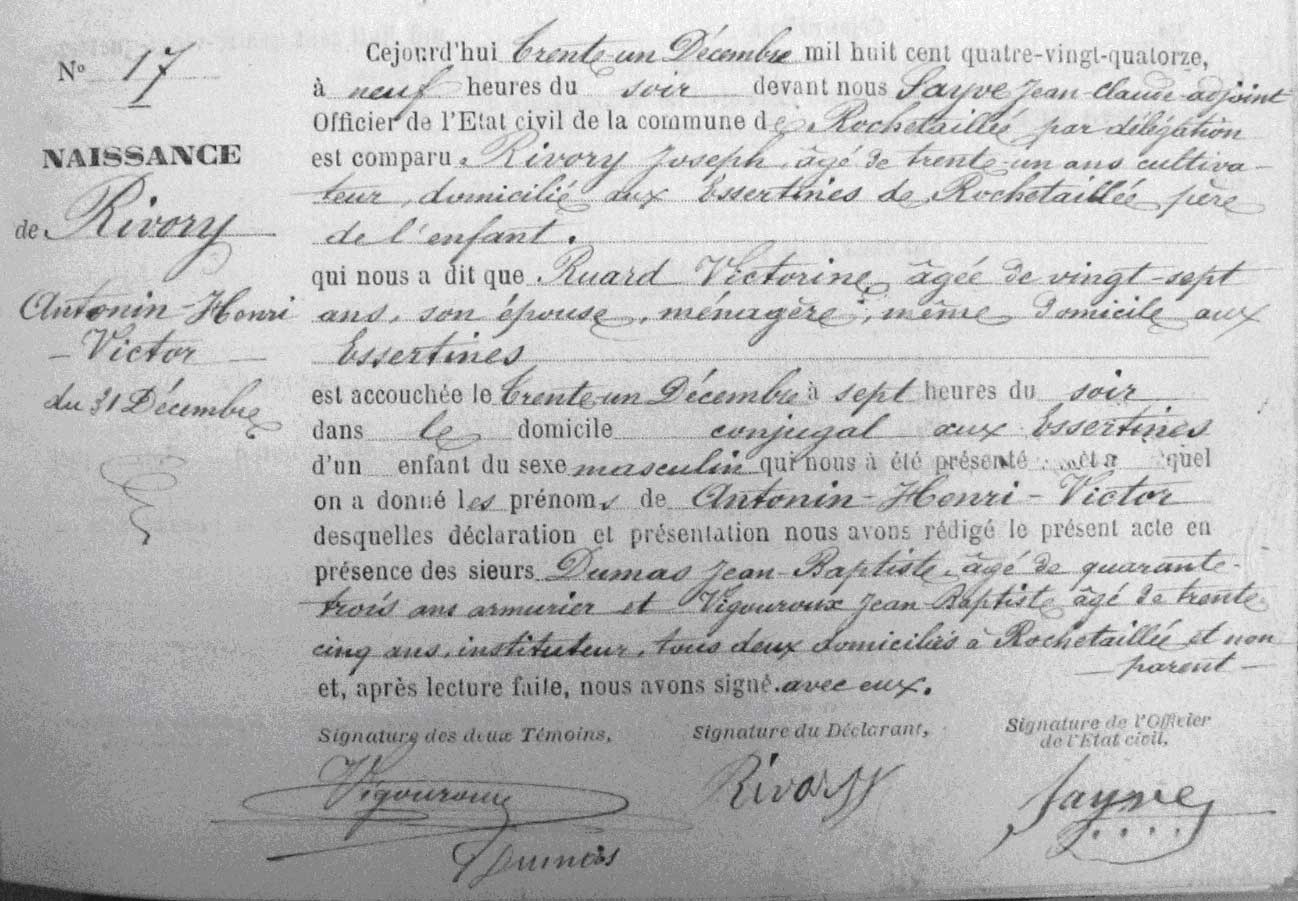 N° 17
NAISSANCE
de Rivory
Antonin-Henri
- Victor -
du 31 Décembre
Cejourd'hui trente-un Décembre mil huit cent quatre-vingt-quatorze,
à neuf heures du soir devant nous Sayve Jean-Claude adjoint
Officier de l'Etat civil de la commune de Rochetaillée par délégation
est comparu Rivory Joseph, âgé de trente-un ans cultiva-
teur, domicilié aux Essertines de Rochetaillée père
de l'enfant.
qui nous a dit que Ruard Victorine, âgée de vingt-sept
ans, son épouse, ménagère, même domicile aux
Essertines
est accouchée le trente-un Décembre à sept heures du soir
dans le domicile conjugal aux Essertines
d'un enfant du sexe masculin qui nous à été présenté et a quel
on a donné les prénoms de Antonin-Henri-Victor
desquelles déclaration et présentation nous avons rédigé le présent acte en
présence des sieurs Dumas Jean-Baptiste âgé de quarante-
trois ans armurier et Vigouroux Jean-Baptiste âgé de trente-
cinq ans, instituteur, tous deux domiciliés à Rochetaillée et non
- parent -
et, après lecture faite, nous avons signé avec eux.
Signature des deux Témoins,
Signature du Déclarant,
Signature de l'Officier
de l'Etat civil,
Vigouroux
Rivory
Sayve
Dumas